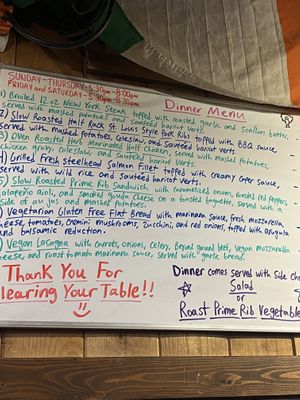 SUNDAY-THURSDAY-5:30pm-8:00pm
FRIDAY and SATURDAY-5:30pm-8:30pm
Dinner Menu
1) Broiled 12 oz New York Steak topped with roasted garlic and scallion butter,
served with mashed potatoes and sauteed haricot verts.
2) Slow Roasted Half Rack St Louis Style Pork Ribs topped with BBQ sauce,
served with mashed potatoes, coleslaw, and sauteed haricot verts.
3) Oven Roasted Herb Marinated Half Chicken, served with mashed potatoes,
chicken gravy, coleslaw and sauteed haricot verts.
4) Grilled Fresh Steelhead Salmon Fillet topped with creamy caper sauce,
served with wild rice and sauteed haricot verts.
5) Slow Roasted Prime Rib Sandwich with caramelized onions, roasted red peppers,
jalapeño aioli, and smoked gouda cheese on a toasted baguette, served with a
side of au jus and mashed potatoes.
) Vegetarian Gluten Free Flat Bread with marinara sauce, fresh mozzarella
cheese, tomatoes, cremini mushrooms, zucchini, and red onions, topped with arugula
and balsamic reduction.
) Vegan Lasagna with carrots, onions, celery, Beyond ground beef, vegan mozzarella
cheese, and roast tomato marinara sauce, served with garlic bread.
Thank You For
Clearing Your Table!!
Dinner comes served with side
Salad
or
Roast Prime Rib Vegetable